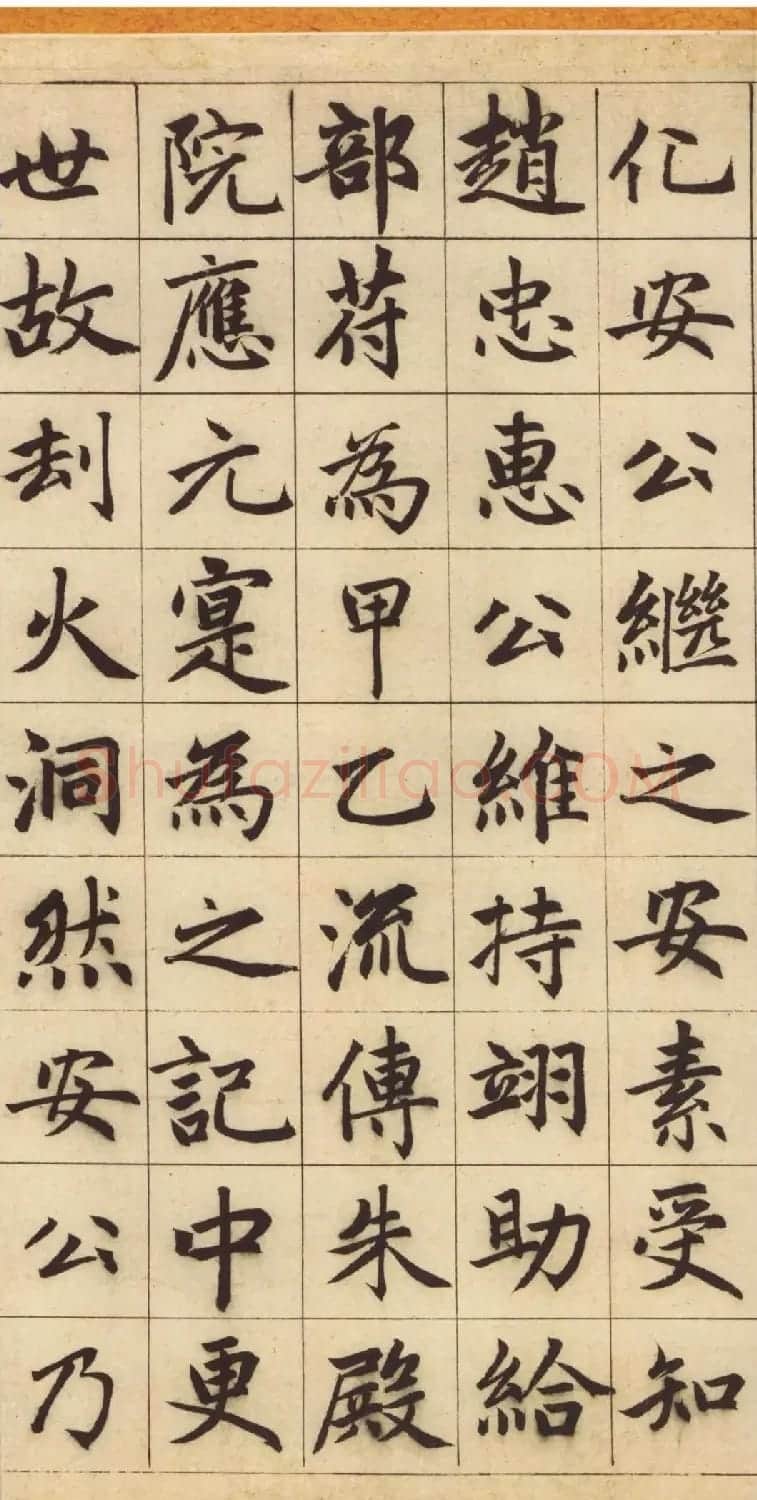 化安公繼之安素受知
趙忠惠公維持翊助給
部苻為甲乙流傳朱殿
院應元寔為之記中更
世故刼火洞然安公乃
Shufaziliao.COM